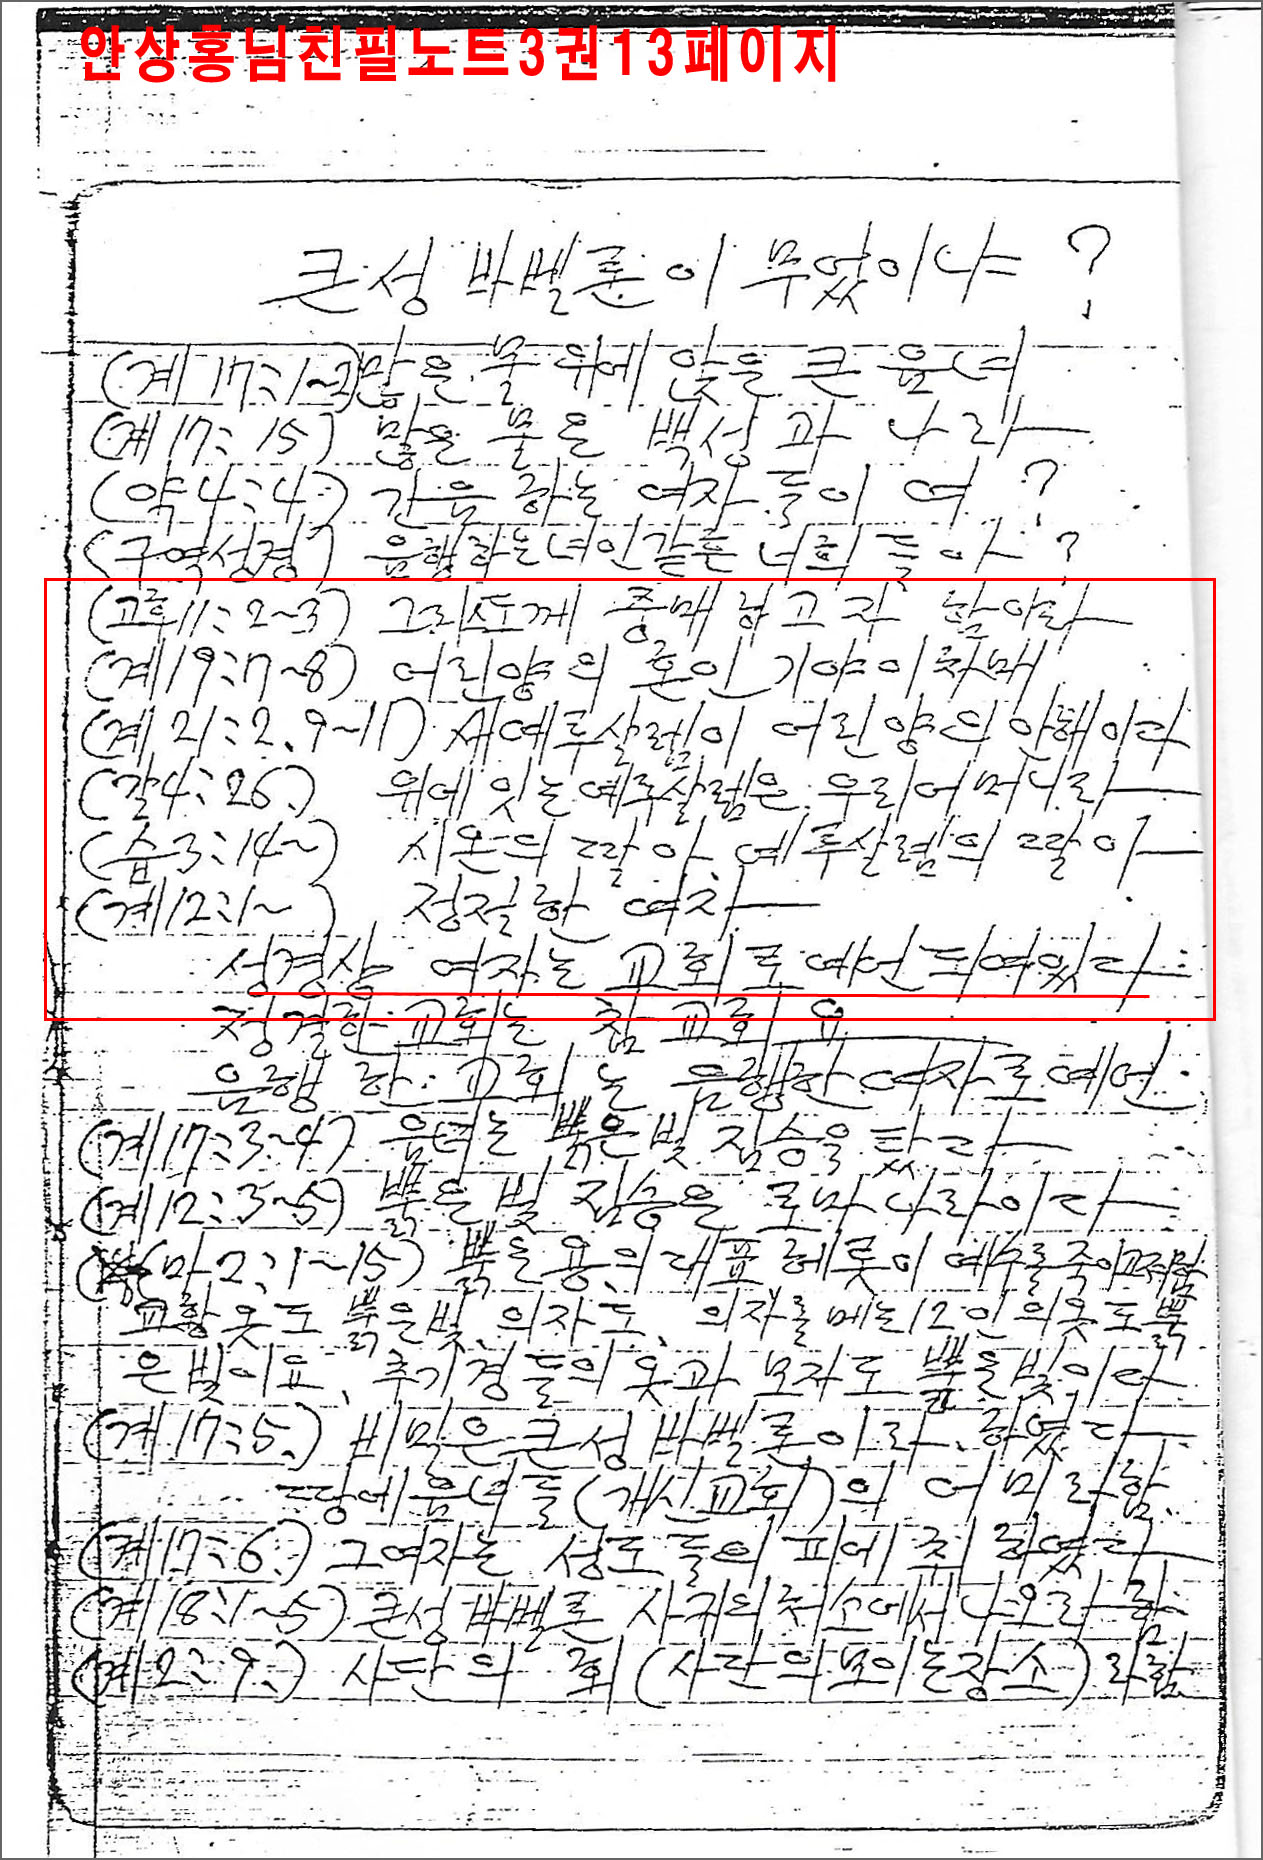 안상홍님친필노트3권13페이지
큰성 바벨론이 무엇이냐?
(계 17:1~2) 많은 물 위에 앉은 큰 음녀
(계 17:15) 많은 물은 백성과 나라
(약 4:4) 간음하는 여자들이여?
(구역성경) 음행하는 녀인같은 너희들아?
(고후11:2~3) 그리스도께 중매하고자 함이라
(계19:7~8) 어린양의 혼인 기약이
(계 21:2. 9~11) 새예루살렘이 어린양의 안해이다
(갈4:26) 위에 잇는 예루살렘은 우리어머니라
(습3:14~) 시온의 딸아 예루살렘의 딸아
(계12:1~) 정절한 여자
성경상 여자는 교회로 예언되여있다
정결한 교회는 참 교회요
음행한 교회는 음행한 여자로 예언
(계17:3~4) 음녀는 붉은빛 짐승을 탔다
(계12:3~5) 붉은빛 짐승은 로마나라이다
(마2:1~15) 붉은용의 대표 헤롯이 예수를 죽이고저함
교황 옷도 붉은빛, 의자도, 의자를 메는 12인의 옷도 붉
은빛이요, 추기경들의 옷과 모자도 붉은빛이다
(계17:5) 비밀은 큰성 바벨론이라 하였다
땅에 음녀들 (개신교회)의 어미라함.
(계17:6) 그여자는 성도들의 피에 취하였다
(계18:1~5) 큰성 바벨론 사귀의 처소에서 나오라 함
(계2:9) 사단의 회 (사단의 모이는장소)라함